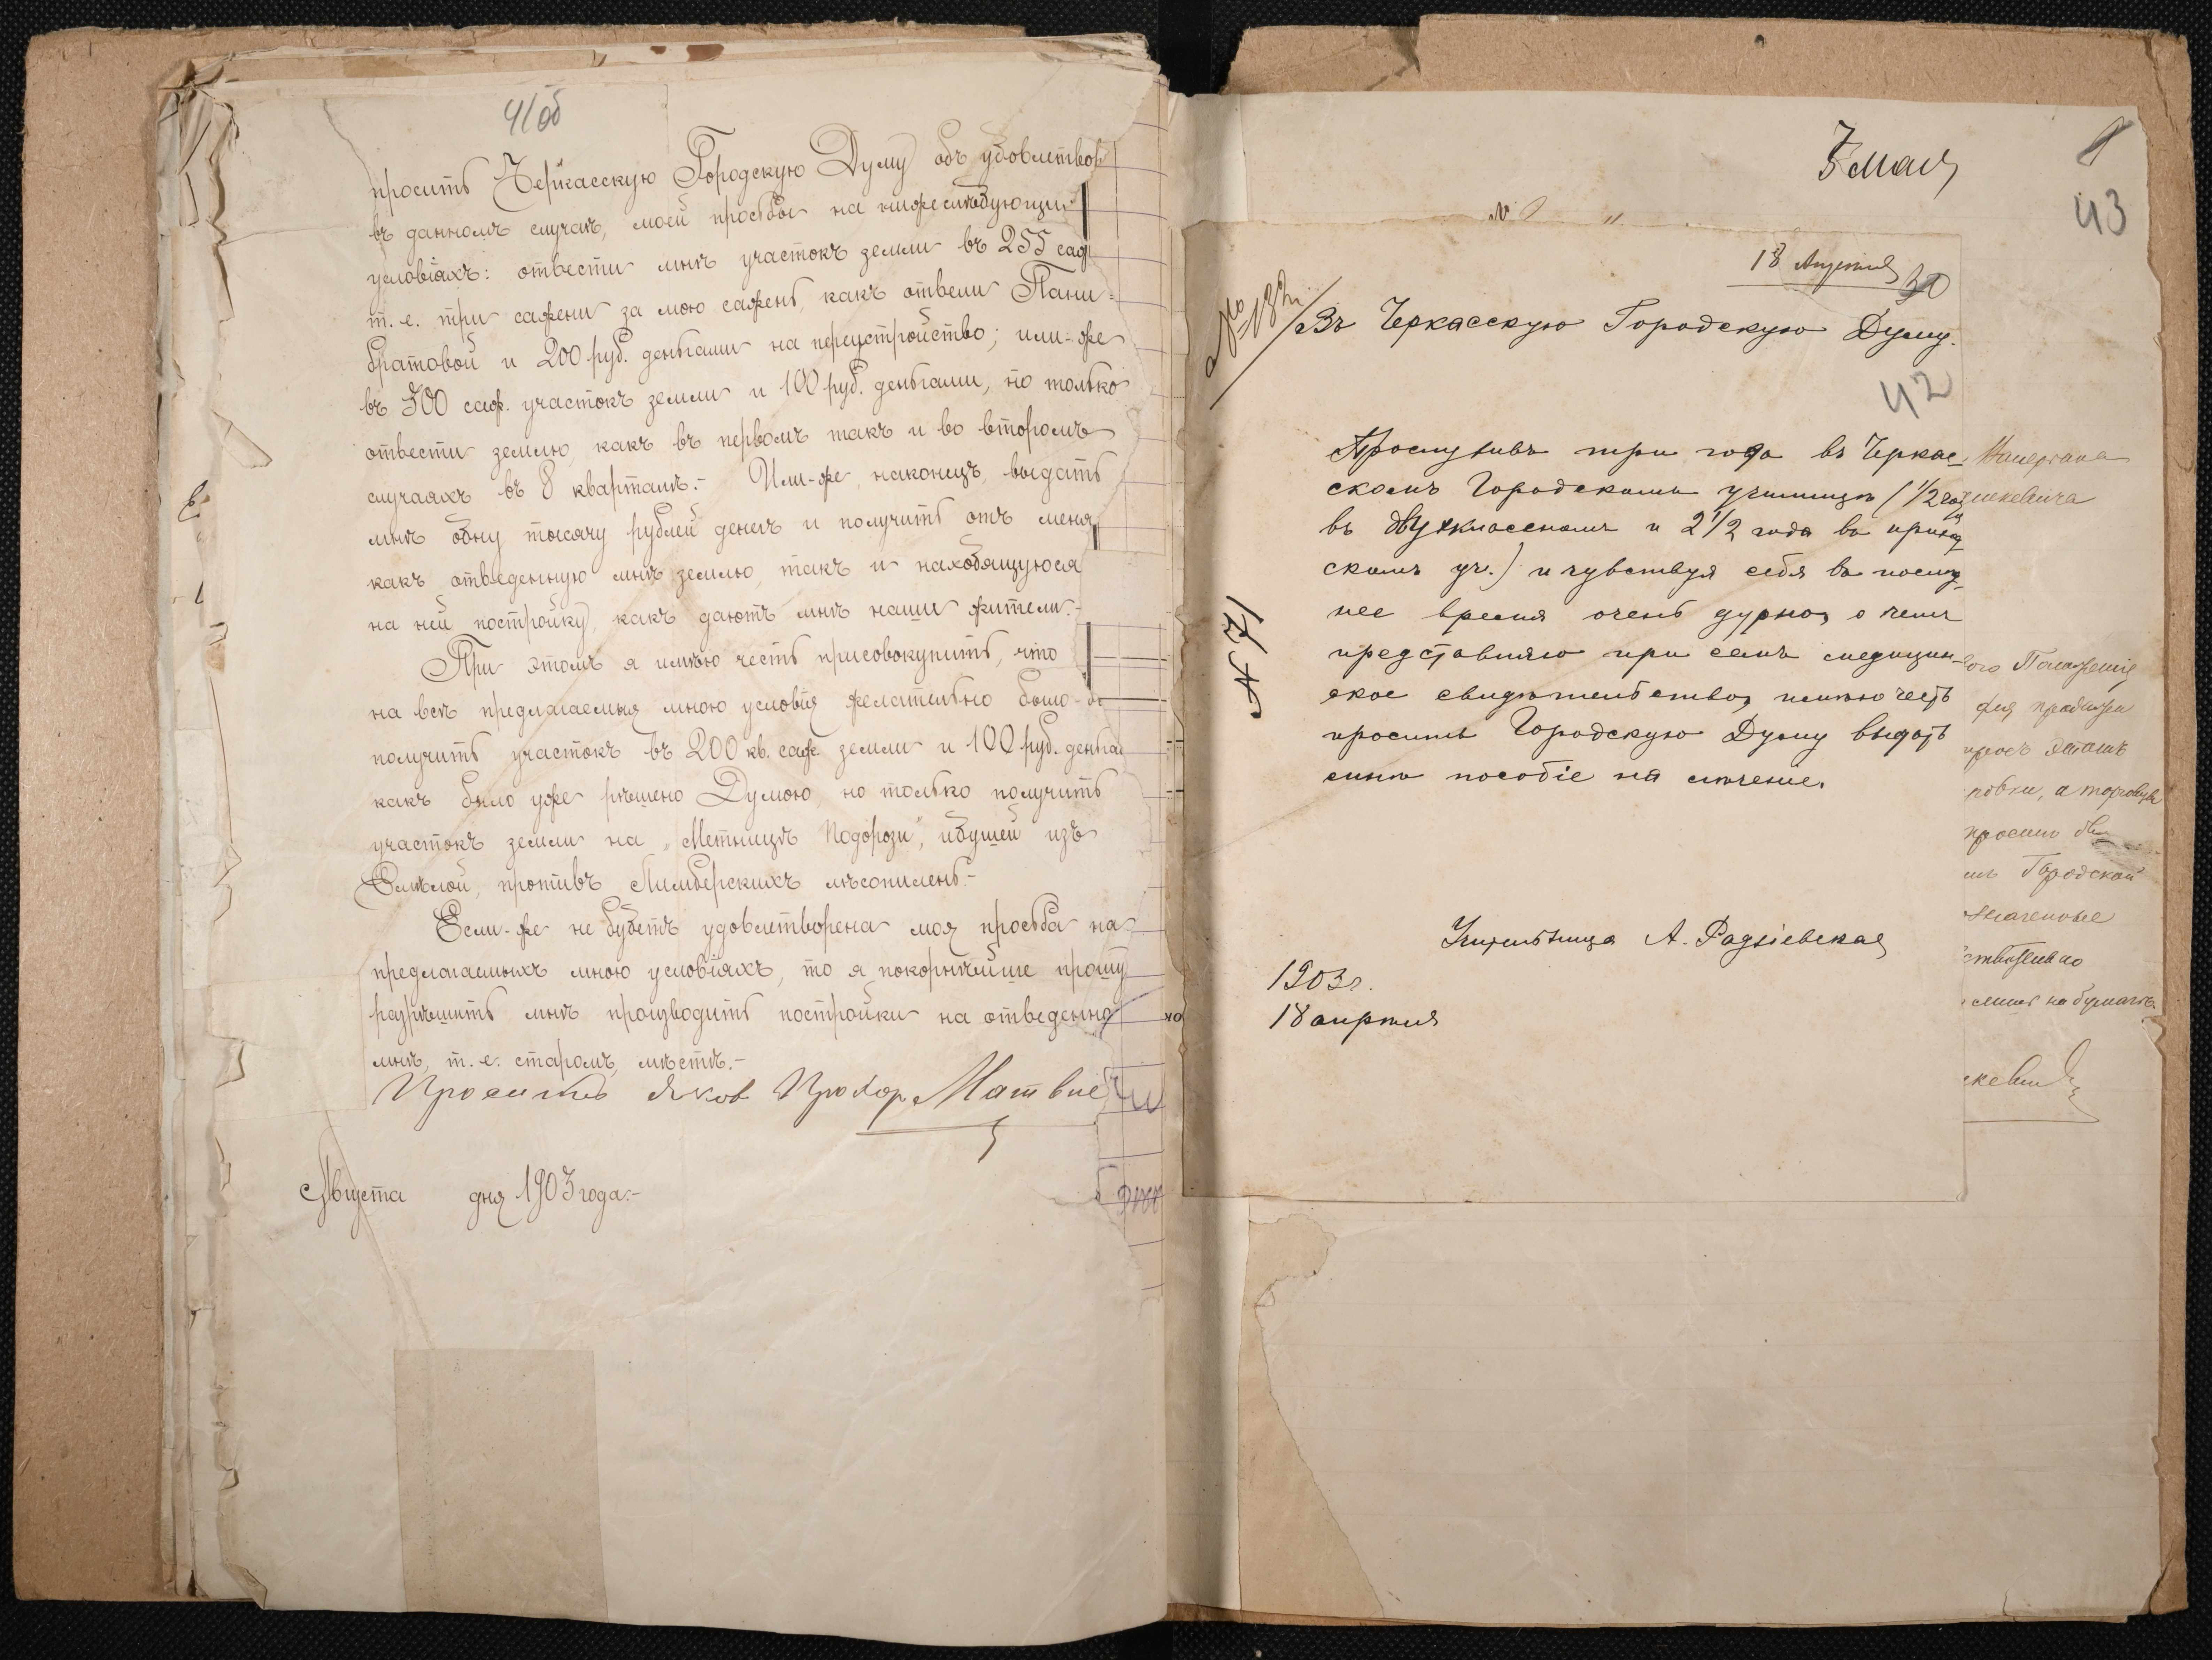 41об
проситъ Черкасскую Городскую Думу объ удовлетвор
въ данномъ случаѣ, моей просьбы на нижеслѣдующих
условіяхъ: отвести мнѣ участокъ земли въ 255 саж
т.е. три сажени за мою сажень, какъ отвели Пани-
братовой и 200 руб. деньгами на переустройство; или-же
въ 300 саж. участокъ земли и 100 руб. деньгами, но только
отвести землю, какъ въ первомъ такъ и во второмъ
случаяхъ въ 8 кварталѣ.- Или-же, наконецъ, выдать
мнѣ одну тысячу рублей денегъ и получить отъ меня,
какъ отведенную мнѣ землю, такъ и находящуюся
на ней постройку, какъ даютъ мнѣ наши жители.-
При этомъ я имѣю честь присовокупить, что
на всѣ предлагаемыя мною условія желательно было-бы
получить участокъ въ 200 кв. саж. земли и 100 руб. деньга
какъ было уже рѣшено Думою, но только получить
участокъ земли на „Мѣтницѣ Подорози", идущей изъ
Смѣлой, противъ Лимберскихъ лѣсопиленъ.-
Если-же не будетъ удовлетворена моя просьба на
предлагаемыхъ мною условіяхъ, то я покорнѣйше прошу
разрѣшить мнѣ производить постройки на отведенно
мнѣ, т.е. старомъ, мѣстѣ.-
Проситъ Яков Прохор Матвие
Августа дня 1903 года.-
мая
43
18 Апрѣля
30
Въ Черкасскую Городскую Думу.
42
Прослуживъ три года въ Черкас-
скомъ Городскомъ училищѣ (1/2 года
въ двухклассномъ и 2 1/2 года въ приход
скомъ уч.) и чувствуя себя въ послѣд-
нее время очень дурно, о чемъ
представляю при семъ медицин-
ское свидѣтельство, имѣю честь
просить Городскую Думу выдать
мнѣ пособіе на леченіе.
№ 71
Учительница А. Радзіевская
1903 г.
18 апрѣля